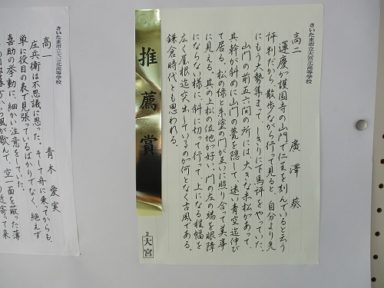 高二
廣澤 葵
運慶が護国寺の山門で仁王を刻んでいると云う
評判だから、散歩ながら行って見ると、自分より先
にもう大勢集まって、しきりに下馬評をやっていた。
山門の前五六間の所には、大きな赤松があって、
其幹が斜めに山門の甍を隠して、遠い青空迄伸び
て居る。松の緑と朱塗の門が互いに照り合って美事
に見える。其の上松の位地が好い。門の左の端を眼障
にならない様に、斜に切って行って、上になる程幅を
広く屋根迄突出しているのが何となく古風である。
鎌倉時代とも思われる。
推薦賞
大宮
高一
青木 愛実
庄兵衛は不思議に思った。そして舟に乗ってからも、
単に役目の表で見張っているばかりでなく、絶えず
喜助の挙動に、細かい注意をしていた。
風が歇んで、空一面を蔽った薄